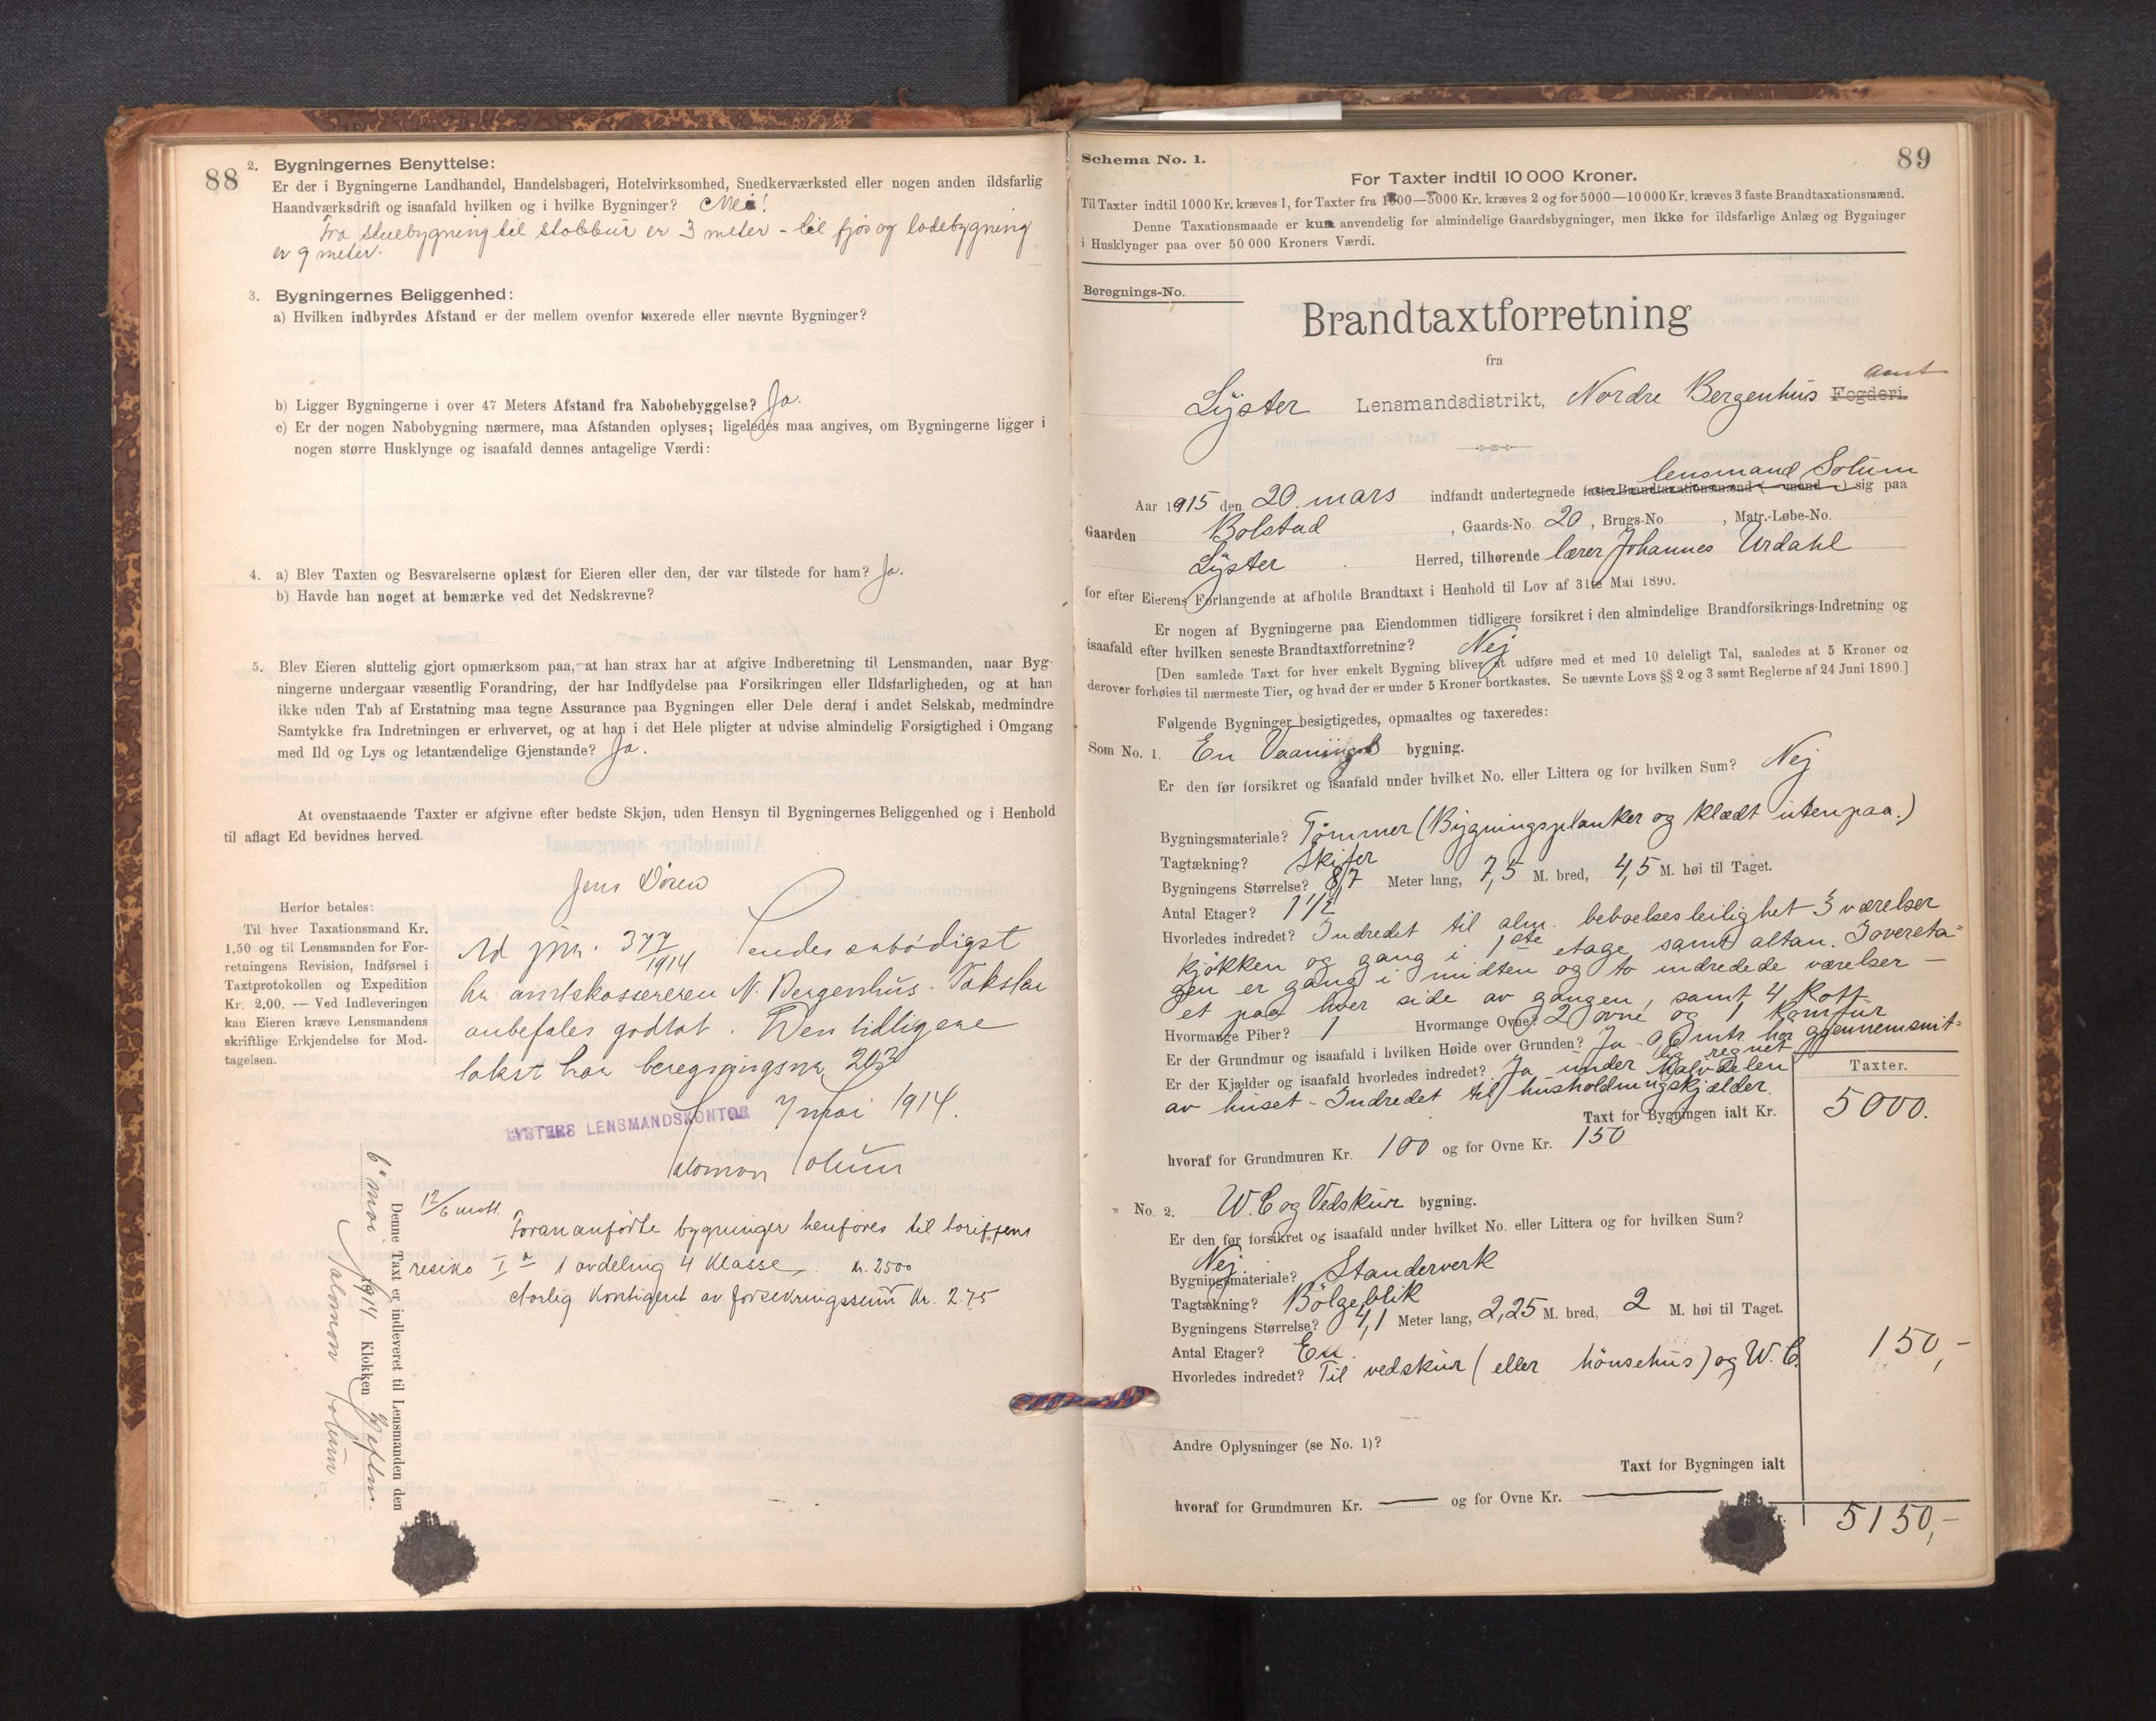 88
2. Bygningernes Benyttelse:
Er der i Bygningerne Landhandel, Handelsbageri, Hotelvirksomhed, Snedkerværksted eller nogen anden ildsfarlig
Haandværksdrift og isaafald hvilken og i hvilke Bygninger? Nei!
Fra stuebygning til stabbur er 3 meter - til fjøs og ladebygning
er 9 meter.
3. Bygningernes Beliggenhed:
a) Hvilken indbyrdes Afstand er der mellem ovenfor taxerede eller nævnte Bygninger?
b) Ligger Bygningerne i over 47 Meters Afstand fra Nabobebyggelse? Ja.
c) Er der nogen Nabobygning nærmere, maa Afstanden oplyses; ligeledes maa angives, om Bygningerne ligger i
nogen større Husklynge og isaafald dennes antagelige Værdi:
4. a) Blev Taxten og Besvarelserne oplæst for Eieren eller den, der var tilstede for ham? Ja.
b) Havde han noget at bemærke ved det Nedskrevne?
5. Blev Eieren sluttelig gjort opmærksom paa, at han strax har at afgive Indberetning til Lensmanden, naar Byg-
ningerne undergaar væsentlig Forandring, der har Indflydelse paa Forsikringen eller Ildsfarligheden, og at han
ikke uden Tab af Erstatning maa tegne Assurance paa Bygningen eller Dele deraf i andet Selskab, medmindre
Samtykke fra Indretningen er erhvervet, og at han i det Hele pligter at udvise almindelig Forsigtighed i Omgang
med Ild og Lys og letantændelige Gjenstande? Ja.
At ovenstaaende Taxter er afgivne efter bedste Skjøn, uden Hensyn til Bygningernes Beliggenhed og i Henhold
til aflagt Ed bevidnes herved.
Jens Døren
Herfor betales:
Til hver Taxationsmand Kr.
1.50 og til Lensmanden for For-
retningens Revision, Indførsel i
Taxtprotokollen og Expedition
Kr. 2.00. — Ved Indleveringen
kan Eieren kræve Lensmandens
skriftlige Erkjendelse for Mod-
tagelsen.
Ad jnr. 377/1914 Sendes ærbødigst
hr. amtskassereren N. Bergenhus. Taksten
anbefales godtat. Den tidligere
takst har beregningsnr. 203
LYSTERS LENSMANDSKONTOR 7 mai 1914.
Salomon Solum
Denne Taxt er indleveret til Lensmanden den
6 mai 1914 Klokken 3 eftm.
Salomon Solum
12/6 mott.
Foran anførte bygninger henføres til tariffens
resiko I a 1 avdeling 4 klasse. kr. 2500
Aarlig kontigent av forsikringssum kr. 2.75
89
Schema No. 1.
For Taxter indtil 10 000 Kroner.
Til Taxter indtil 1000 Kr. kræves 1, for Taxter fra 1000—5000 Kr. kræves 2 og for 5000—10 000 Kr. kræves 3 faste Brandtaxationsmænd.
Denne Taxationsmaade er kun anvendelig for almindelige Gaardsbygninger, men ikke for ildsfarlige Anlæg og Bygninger
i Husklynger paa over 50 000 Kroners Værdi.
Beregnings-No.
Brandtaxtforretning
fra
Lyster Lensmandsdistrikt, Nordre Bergenhus Fogderi. amt
lensmand Solum
Aar 1915 den 20. mars indfandt undertegnede faste Brandtaxationsmænd (-mand-) sig paa
Gaarden Bolstad, Gaards-No. 20, Brugs-No. , Matr.-Løbe-No.
Lyster Herred, tilhørende lærer Johannes Urdahl
for efter Eierens Forlangende at afholde Brandtaxt i Henhold til Lov af 31te Mai 1890.
Er nogen af Bygningerne paa Eiendommen tidligere forsikret i den almindelige Brandforsikrings-Indretning og
isaafald efter hvilken seneste Brandtaxtforretning? Nej
[Den samlede Taxt for hver enkelt Bygning bliver at udføre med et med 10 deleligt Tal, saaledes at 5 Kroner og
derover forhøies til nærmeste Tier, og hvad der er under 5 Kroner bortkastes. Se nævnte Lovs §§ 2 og 3 samt Reglerne af 24 Juni 1890.]
Følgende Bygninger besigtigedes, opmaaltes og taxeredes:
Som No. 1. En Vaanings bygning.
Er den før forsikret og isaafald under hvilket No. eller Littera og for hvilken Sum? Nej
Bygningsmateriale? Tømmer (Bygningsplanker og klædt utenpaa.)
Tagtækning? Skifer
Bygningens Størrelse? 8,7 Meter lang, 7,5 M. bred, 4,5 M. høi til Taget.
Antal Etager? 1 1/2
Hvorledes indredet? Indredet til alm. beboelsesleilighet 3 værelser
kjøkken og gang i 1ste etage samt altan. I overeta=
gen er gang i midten og to indredede værelser —
et paa hver side av gangen, samt 4 kott.
Hvormange Piber? 1 Hvormange Ovne? 2 ovne og 1 komfur
Er der Grundmur og isaafald i hvilken Høide over Grunden? Ja 0,6 mtr. høi gjennemsnit=
lig regnet
Er der Kjælder og isaafald hvorledes indredet? Ja under halvdelen
av huset - Indredet til husholdningskjælder.
Taxter.
Taxt for Bygningen ialt Kr. 5000.
hvoraf for Grundmuren Kr. 100 og for Ovne Kr. 150
" No. 2. W.C og Vedskur bygning.
Er den før forsikret og isaafald under hvilket No. eller Littera og for hvilken Sum?
Nej
Bygningsmateriale? Standerverk
Tagtækning? Bølgeblik
Bygningens Størrelse? 4,1 Meter lang, 2,25 M. bred, 2 M. høi til Taget.
Antal Etager? En.
Hvorledes indredet? Til vedskur (eller hønsehus) og W.C. 150,-
Andre Oplysninger (se No. 1)?
Taxt for Bygningen ialt
hvoraf for Grundmuren Kr. — og for Ovne Kr. —
Kr. 5150,-